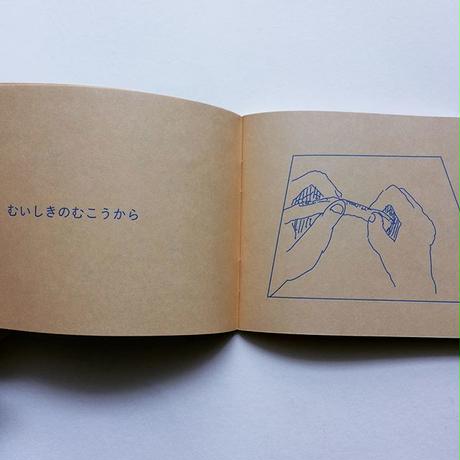 むいしきのむこうから